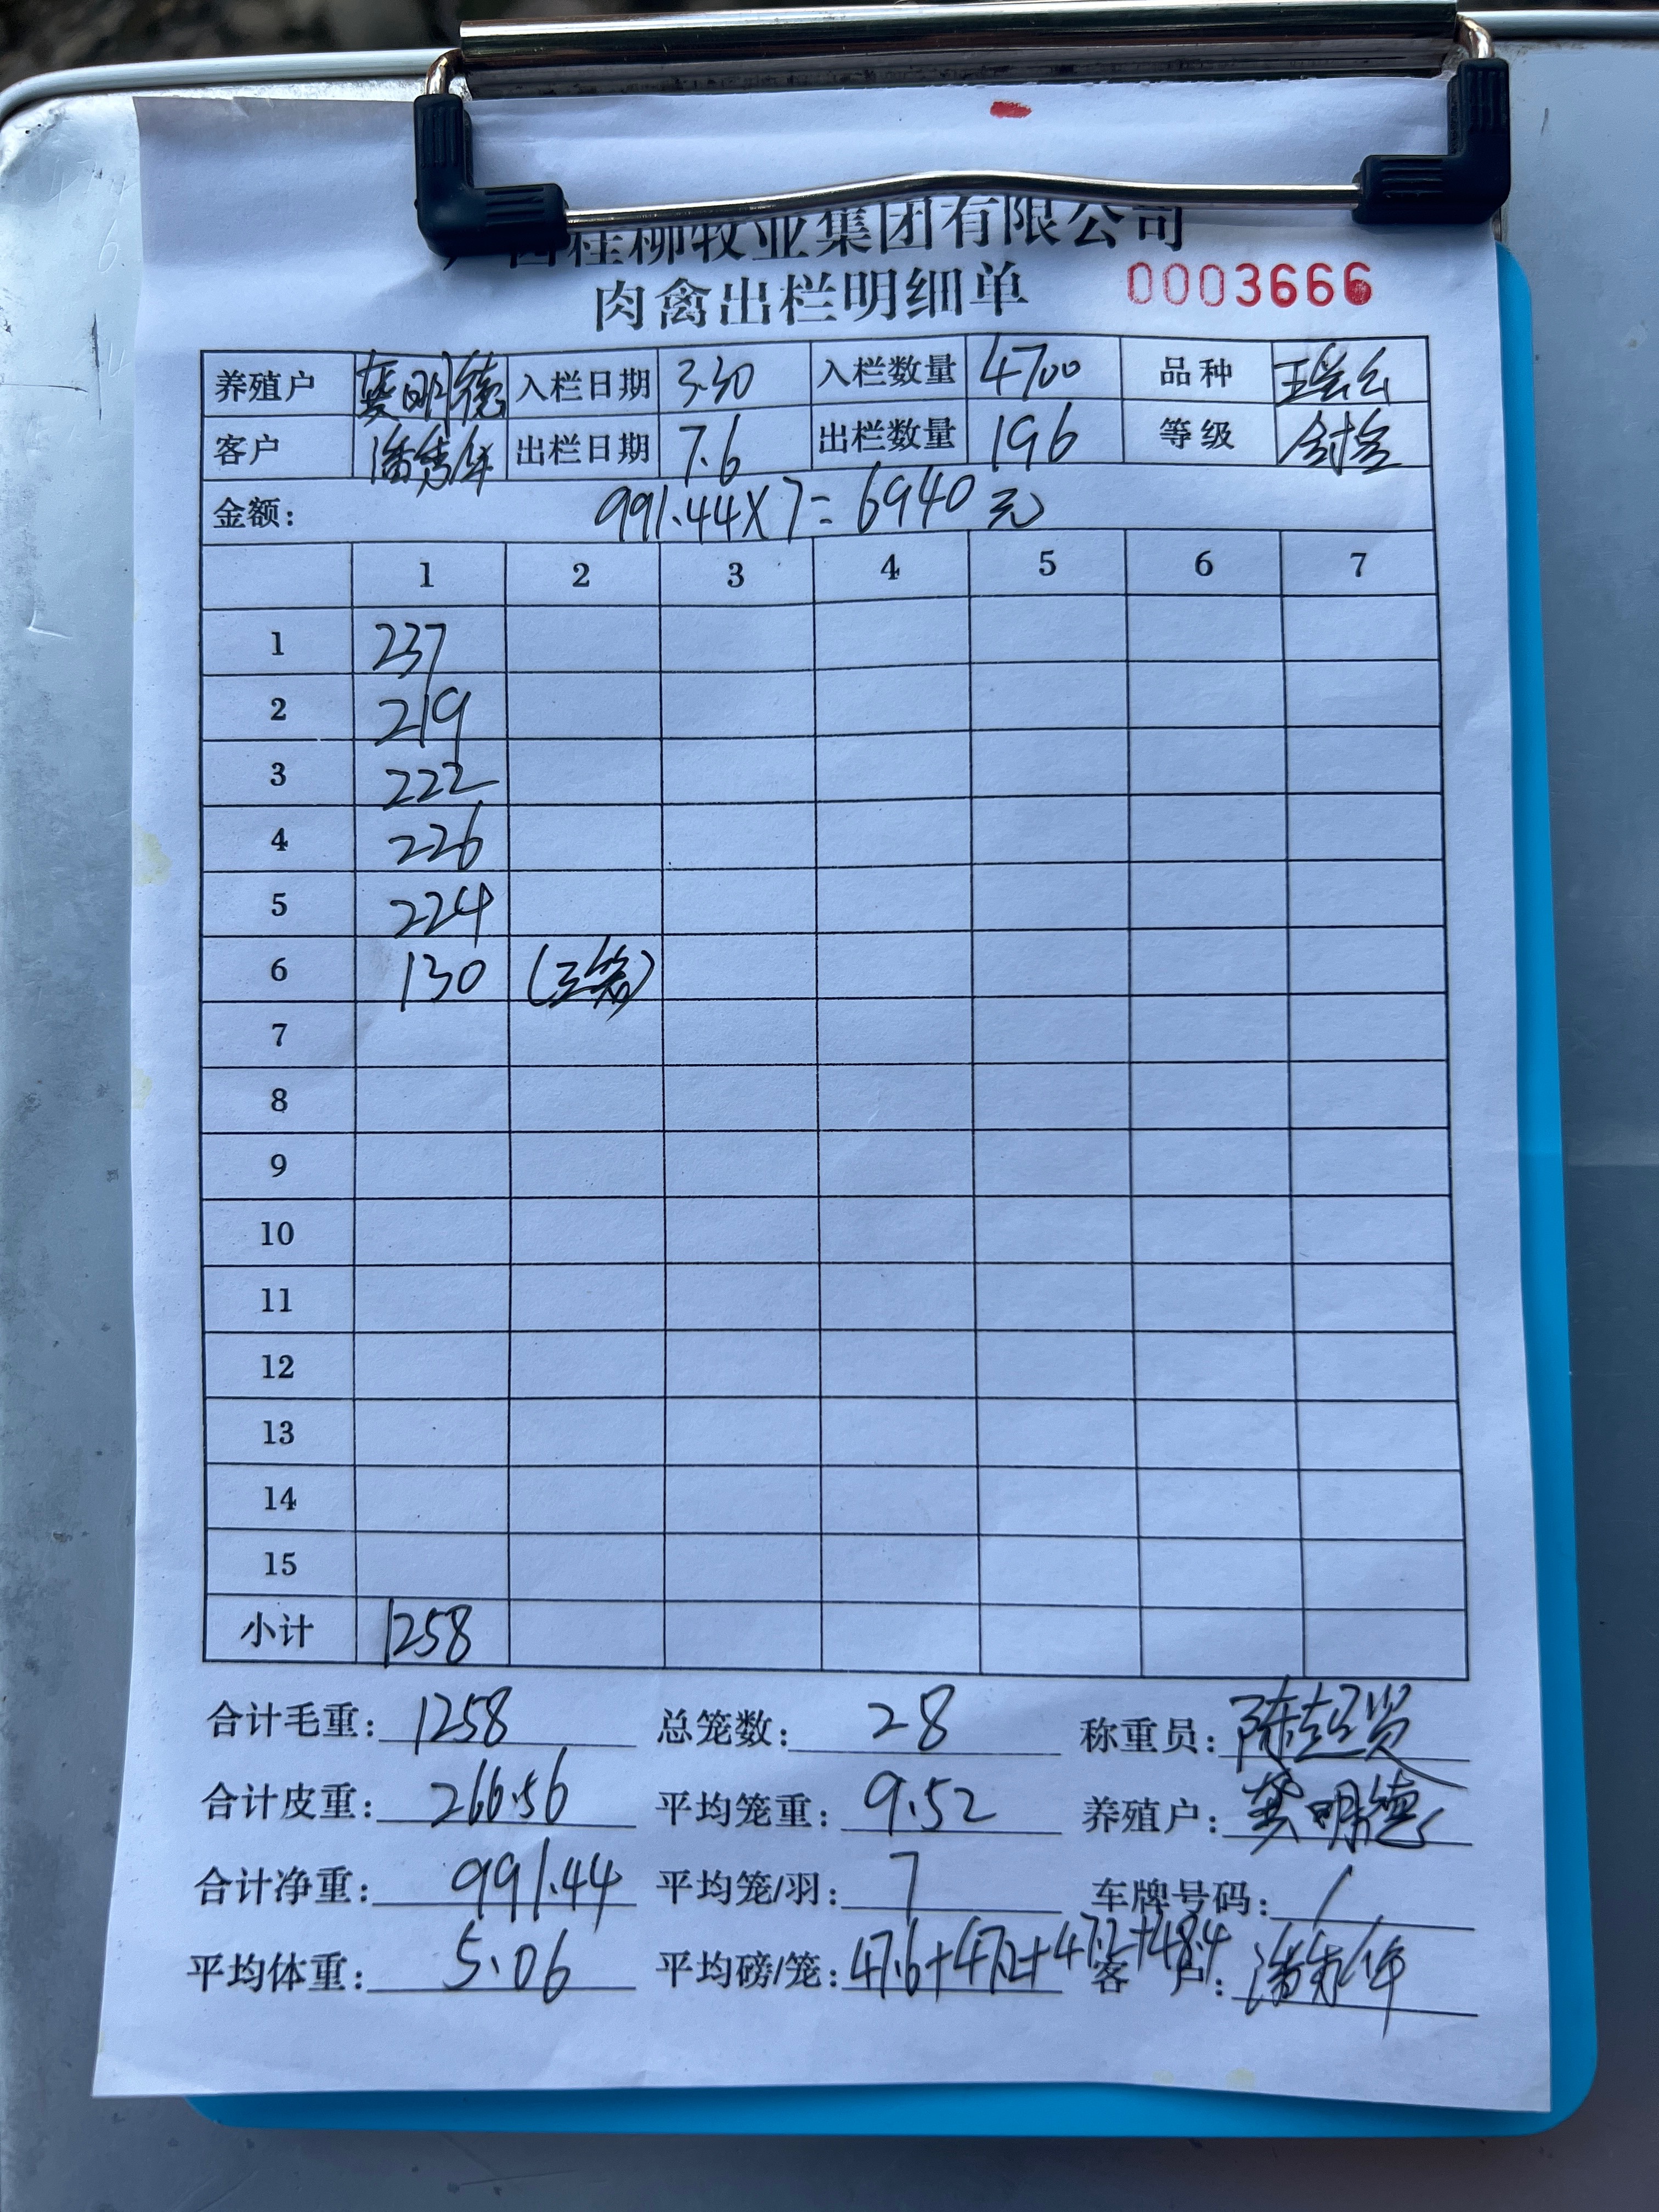 西桂柳牧业集团有限公司
肉禽出栏明细单 0003666
养殖户 龚明德 入栏日期 3.30 入栏数量 4700 品种
客户 出栏日期 7.6 出栏数量 196 等级
金额: 991.44×7=6940元
1 2 3 4 5 6 7
1 237
2 219
3 222
4 226
5 224
6 130 (三笼)
7
8
9
10
11
12
13
14
15
小计 1258
合计毛重: 1258 总笼数: 28 称重员:
合计皮重: 266.56 平均笼重: 9.52 养殖户: 龚明德
合计净重: 991.44 平均笼/羽: 7 车牌号码: /
平均体重: 5.06 平均磅/笼: 47.6+47.2+47.2+48.4 客户: